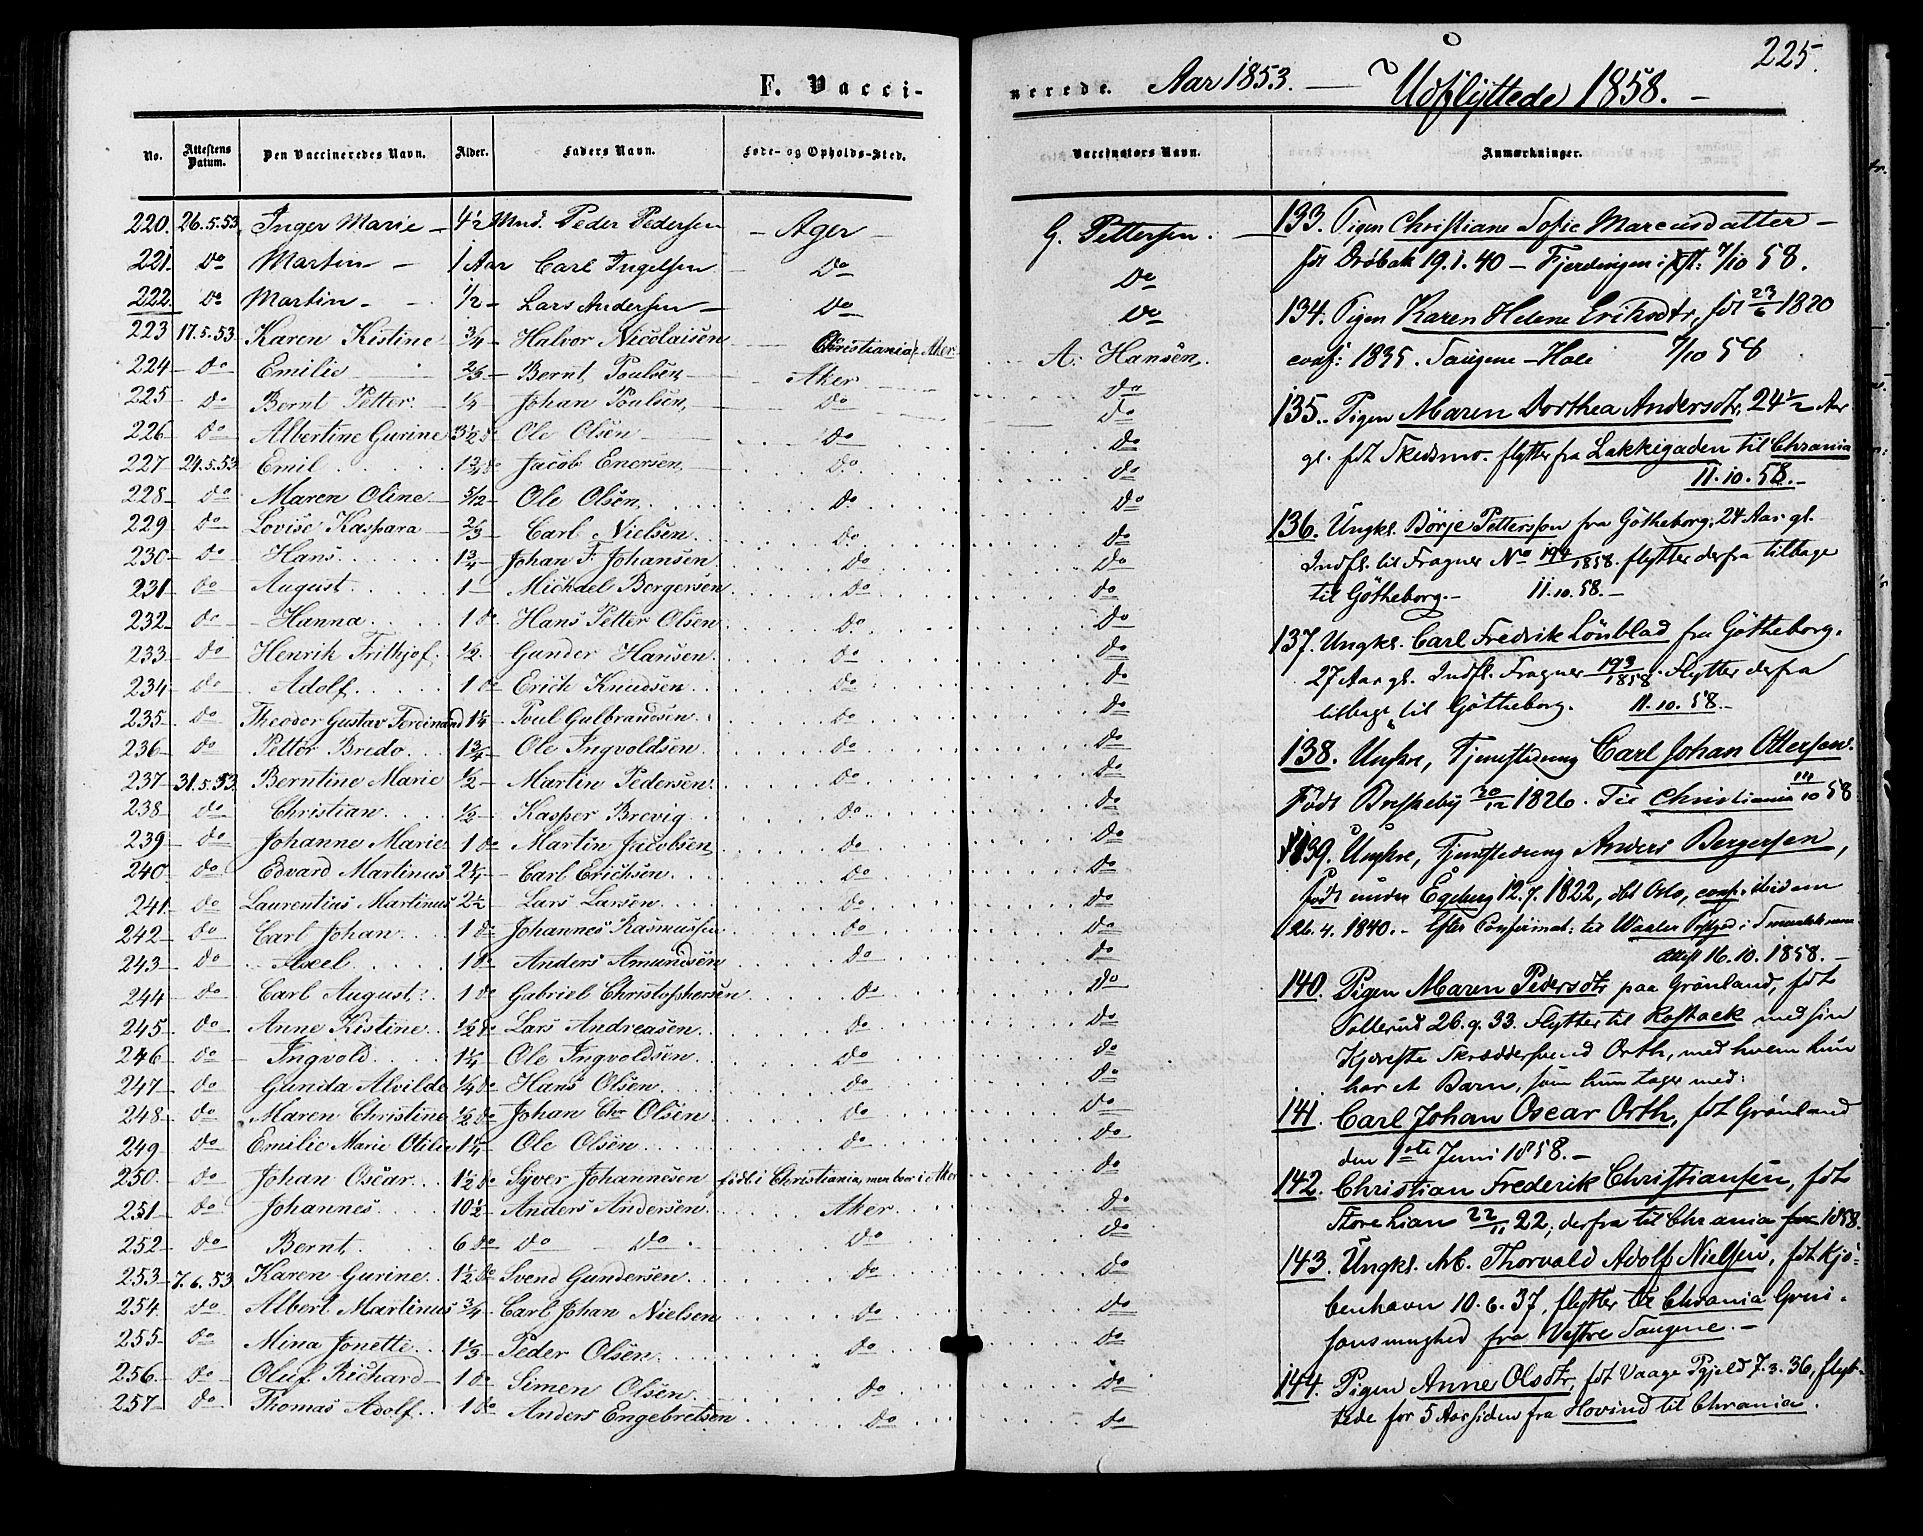 225.
F. Vacci-
nerede. Aar 1853. — Udflyttede 1858. —
No. Attestens Datum. Den Vaccineredes Navn. Alder. Faders Navn. Føde- og Opholds-Sted. Vaccinators Navn. Anmærkninger.
220. 26.5.53 Inger Marie 4½ Mnd. Peder Pedersen Ager G. Pettersen.
221. Do Martin 1 Aar Carl Ingelsen Do Do
222. Do Martin ½ Lars Andersen Do Do
223 17.5.53 Karen Kistine ¾ Halvor Nicolaisen Christiania Aker A. Hansen.
224 Do Emilie ⅔ Bernt Poulsen Aker Do
225 Do Bernt Petter Johan Poulsen Do Do
226 Do Albertine Gurine 3½ do Ole Olsen Do Do
227 24.5.53 Emil 1¾ do Jacob Enersen Do Do
228 Do Maren Oline 5/12 Ole Olsen Do Do
229 Do Lovise Kaspara ⅔ Carl Nielsen Do Do
230 Do Hans 1¾ Johan F. Johansen Do Do
231 Do August 1 Michael Borgersen Do Do
232 Do Hanna 1 Do Hans Petter Olsen Do Do
233 Do Henrik Frithjof ½ Gunder Hansen Do Do
234 Do Adolf 1 Do Erich Knudsen Do Do
235 Do Theodor Gustav Ferdinand 1¼ Poul Gulbrandsen Do Do
236 Do Petter Bredo 1¾ Ole Ingvoldsen Do Do
237 31.5.53 Berntine Marie ½ Martin Pedersen Do Do
238 Do Christian ½ Kasper Brevig Do Do
239 Do Johanne Marie 1 Do Martin Jacobsen Do Do
240 Do Edvard Martinus 2¼ Carl Erichsen Do Do
241 Do Laurentius Martinus 2½ Lars Larsen Do Do
242 Do Carl Johan 1 Do Johannes Rasmussen Do Do
243 Do Axel 1 Do Anders Amundsen Do Do
244 Do Carl August 1 Do Gabriel Christophersen Do Do
245 Do Anne Kistine ½ do Lars Andreasen Do Do
246 Do Ingvold 1¼ Ole Ingvoldsen Do Do
247 Do Gunda Alvilde ¼ Do Hans Olsen Do Do
248 Do Maren Christine ½ Do Johan Chr Olsen Do Do
249 Do Emilie Marie Otilie 1¼ Ole Olsen Do Do
250 Do Johan Oscar 1½ Do Syver Johannesen født i Christiania, men bor i Aker Do
251 Do Johannes 10½ Anders Andersen Aker Do
252 Do Bernt 6 Do Do Do Do Do
253 7.6.53 Karen Gurine 1½ Do Svend Gundersen Do Do
254 Do Albert Martinus ¾ Carl Johan Nielsen Do Do
255 Do Mina Jonette 1⅓ Peder Olsen Do Do
256 Do Oluf Richard 1 Do Simen Olsen Do Do
257 Do Thomas Adolf 1 Do Anders Engebretsen Do Do
133. Pigen Christiane Sofie Marcusdatter —
før Drøbak 19.1.40 — Fjerdingen: 7/10 58.
134. Pigen Karen Helene Eriksdtr, fdt 23/6 1820
conf: 1835. Taugene — Hole 7/10 58
135. Pigen Maren Dorthea Andersdtr, 24½ Aar
gl. fdt Skedsmo. flytter fra Lakkegaden til Chrania
11.10.58. —
136. Ungkl. Börje Pettersson fra Götheborg. 24 Aar gl.
Indfl. til Frogner No 194/1858. flytter derfra tilbage
til Götheborg. — 11.10.58. —
137. Ungkl. Carl Fredrik Lönblad fra Götheborg.
27 Aar gl. Indfl. Frogner 193/1858. Flytter derfra
tilbage til Götheborg. 11.10.58. —
138. Ungkre, Tjenestedreng Carl Johan Ottersen.
Født Briskeby 30/12 1826. Til Christiania 14/10 58
139. Ungkre, Tjenestedreng Anders Bergersen,
født under Egeberg 12.7.1822, dbt Oslo, conf. ibidem
26.4.1840. — Efter Confirmat: til Waaler Prstgd i Smaalehnene
attest 16.10.1858. —
140. Pigen Maren Pedersdtr paa Grønland, fdt
Sollerud 26.9.33. Flytter til Rostock med sin
Kjæreste Skræddersvend Orth, med hvem hun
har et Barn, som hun tager med:
141. Carl Johan Oscar Orth, fdt Grønland
den 9de Juni 1858. —
142. Christian Frederik Christiansen, fdt
Store Lian 22/11 22, derfra til Chrania 1858.
143. Ungkl. M. Thorvald Adolf Nielsen, fdt Kjø-
benhavn 10.6.37, flytter til Chrania Garni-
sonsmenighed fra Vestre Taugene. —
144. Pigen Anne Olsdtr, fdt Vaage Pgjeld 7.3.36, flyt-
tede for 5 Aar siden fra Hovind til Chrania.